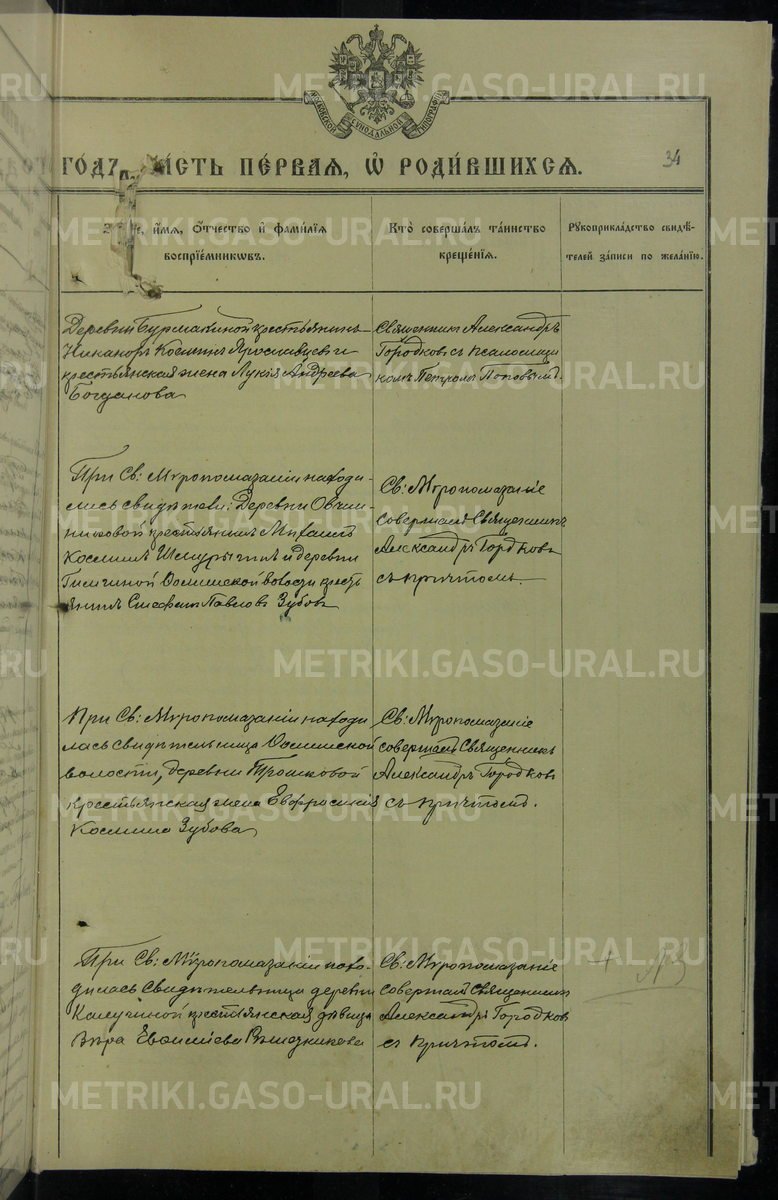 МОСКОВСКОЙ СѴНОДАЛЬНОЙ ТИПОГРАФІИ
34
ГОДꙊ, ЧАСТЬ ПЕ́РВАЯ, Ѡ РОДИ́ВШИХСЯ.
и҆́мѧ, ѻ҆́тчество и҆ фами́лїѧ
воспрїе́мникѡвъ.
Кто̀ соверша́лъ та́инство
креще́нїѧ.
Рꙋкоприкла́дство свидѣ́-
телей за́писи по жела́нїю.
Деревни Бурмакиной крестьянинъ
Никаноръ Косминъ Ярославцевъ и
крестьянская жена Лукія Андреева
Богданова
Священникъ Александръ
Городковъ съ псаломщи
комъ Петромъ Поповымъ.
При Св: Мѵропомазаніи находи-
лись свидѣтели: Деревни Овчин-
никовой крестьянинъ Михаилъ
Косминъ и деревни
волости кресть
янинъ Стефанъ Павловъ Зубовъ
Св: Мѵропомазаніе
совершалъ Священникъ
Александръ Городковъ
съ причтомъ.
При Св: Мѵропомазаніи находи
лась свидѣтельница
волости, деревни Трошковой
крестьянская жена Евфросинія
Космина Зубова
Св: Мѵропомазаніе
совершалъ Священникъ
Александръ Городковъ
съ причтомъ.
При Св: Мѵропомазаніи нахо-
дилась Свидѣтельница деревни
крестьянская дѣвица
Вѣра
Св: Мѵропомазаніе
совершалъ Священникъ
Александръ Городковъ
съ причтомъ.
METRIKI.GASO-URAL.RU